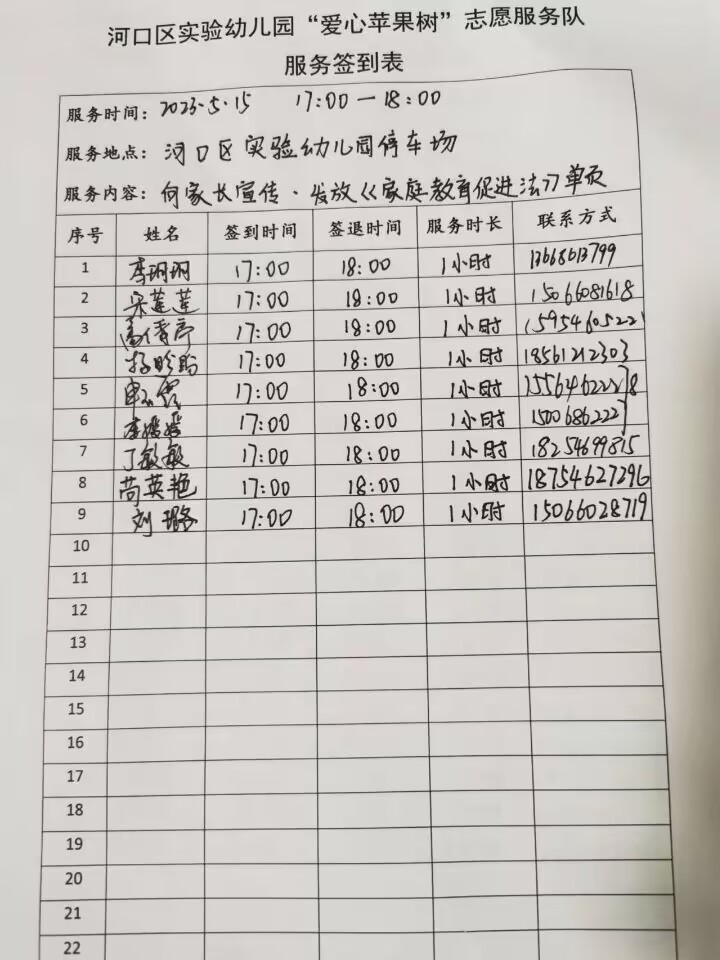 河口区实验幼儿园“爱心苹果树”志愿服务队
服务签到表
服务时间：2023.5.15 17:00—18:00
服务地点：河口区实验幼儿园停车场
服务内容：向家长宣传、发放《家庭教育促进法》单页
序号 姓名 签到时间 签退时间 服务时长 联系方式
1 李珊珊 17:00 18:00 1小时 13668613799
2 宋莲莲 17:00 18:00 1小时 15066081618
3 17:00 18:00 1小时 15954605221
4 17:00 18:00 1小时 18561212303
5 17:00 18:00 1小时
6 李媛媛 17:00 18:00 1小时
7 丁敏敏 17:00 18:00 1小时 18254699815
8 苟英艳 17:00 18:00 1小时 18754627296
9 刘璐 17:00 18:00 1小时 15066028719
10
11
12
13
14
15
16
17
18
19
20
21
22